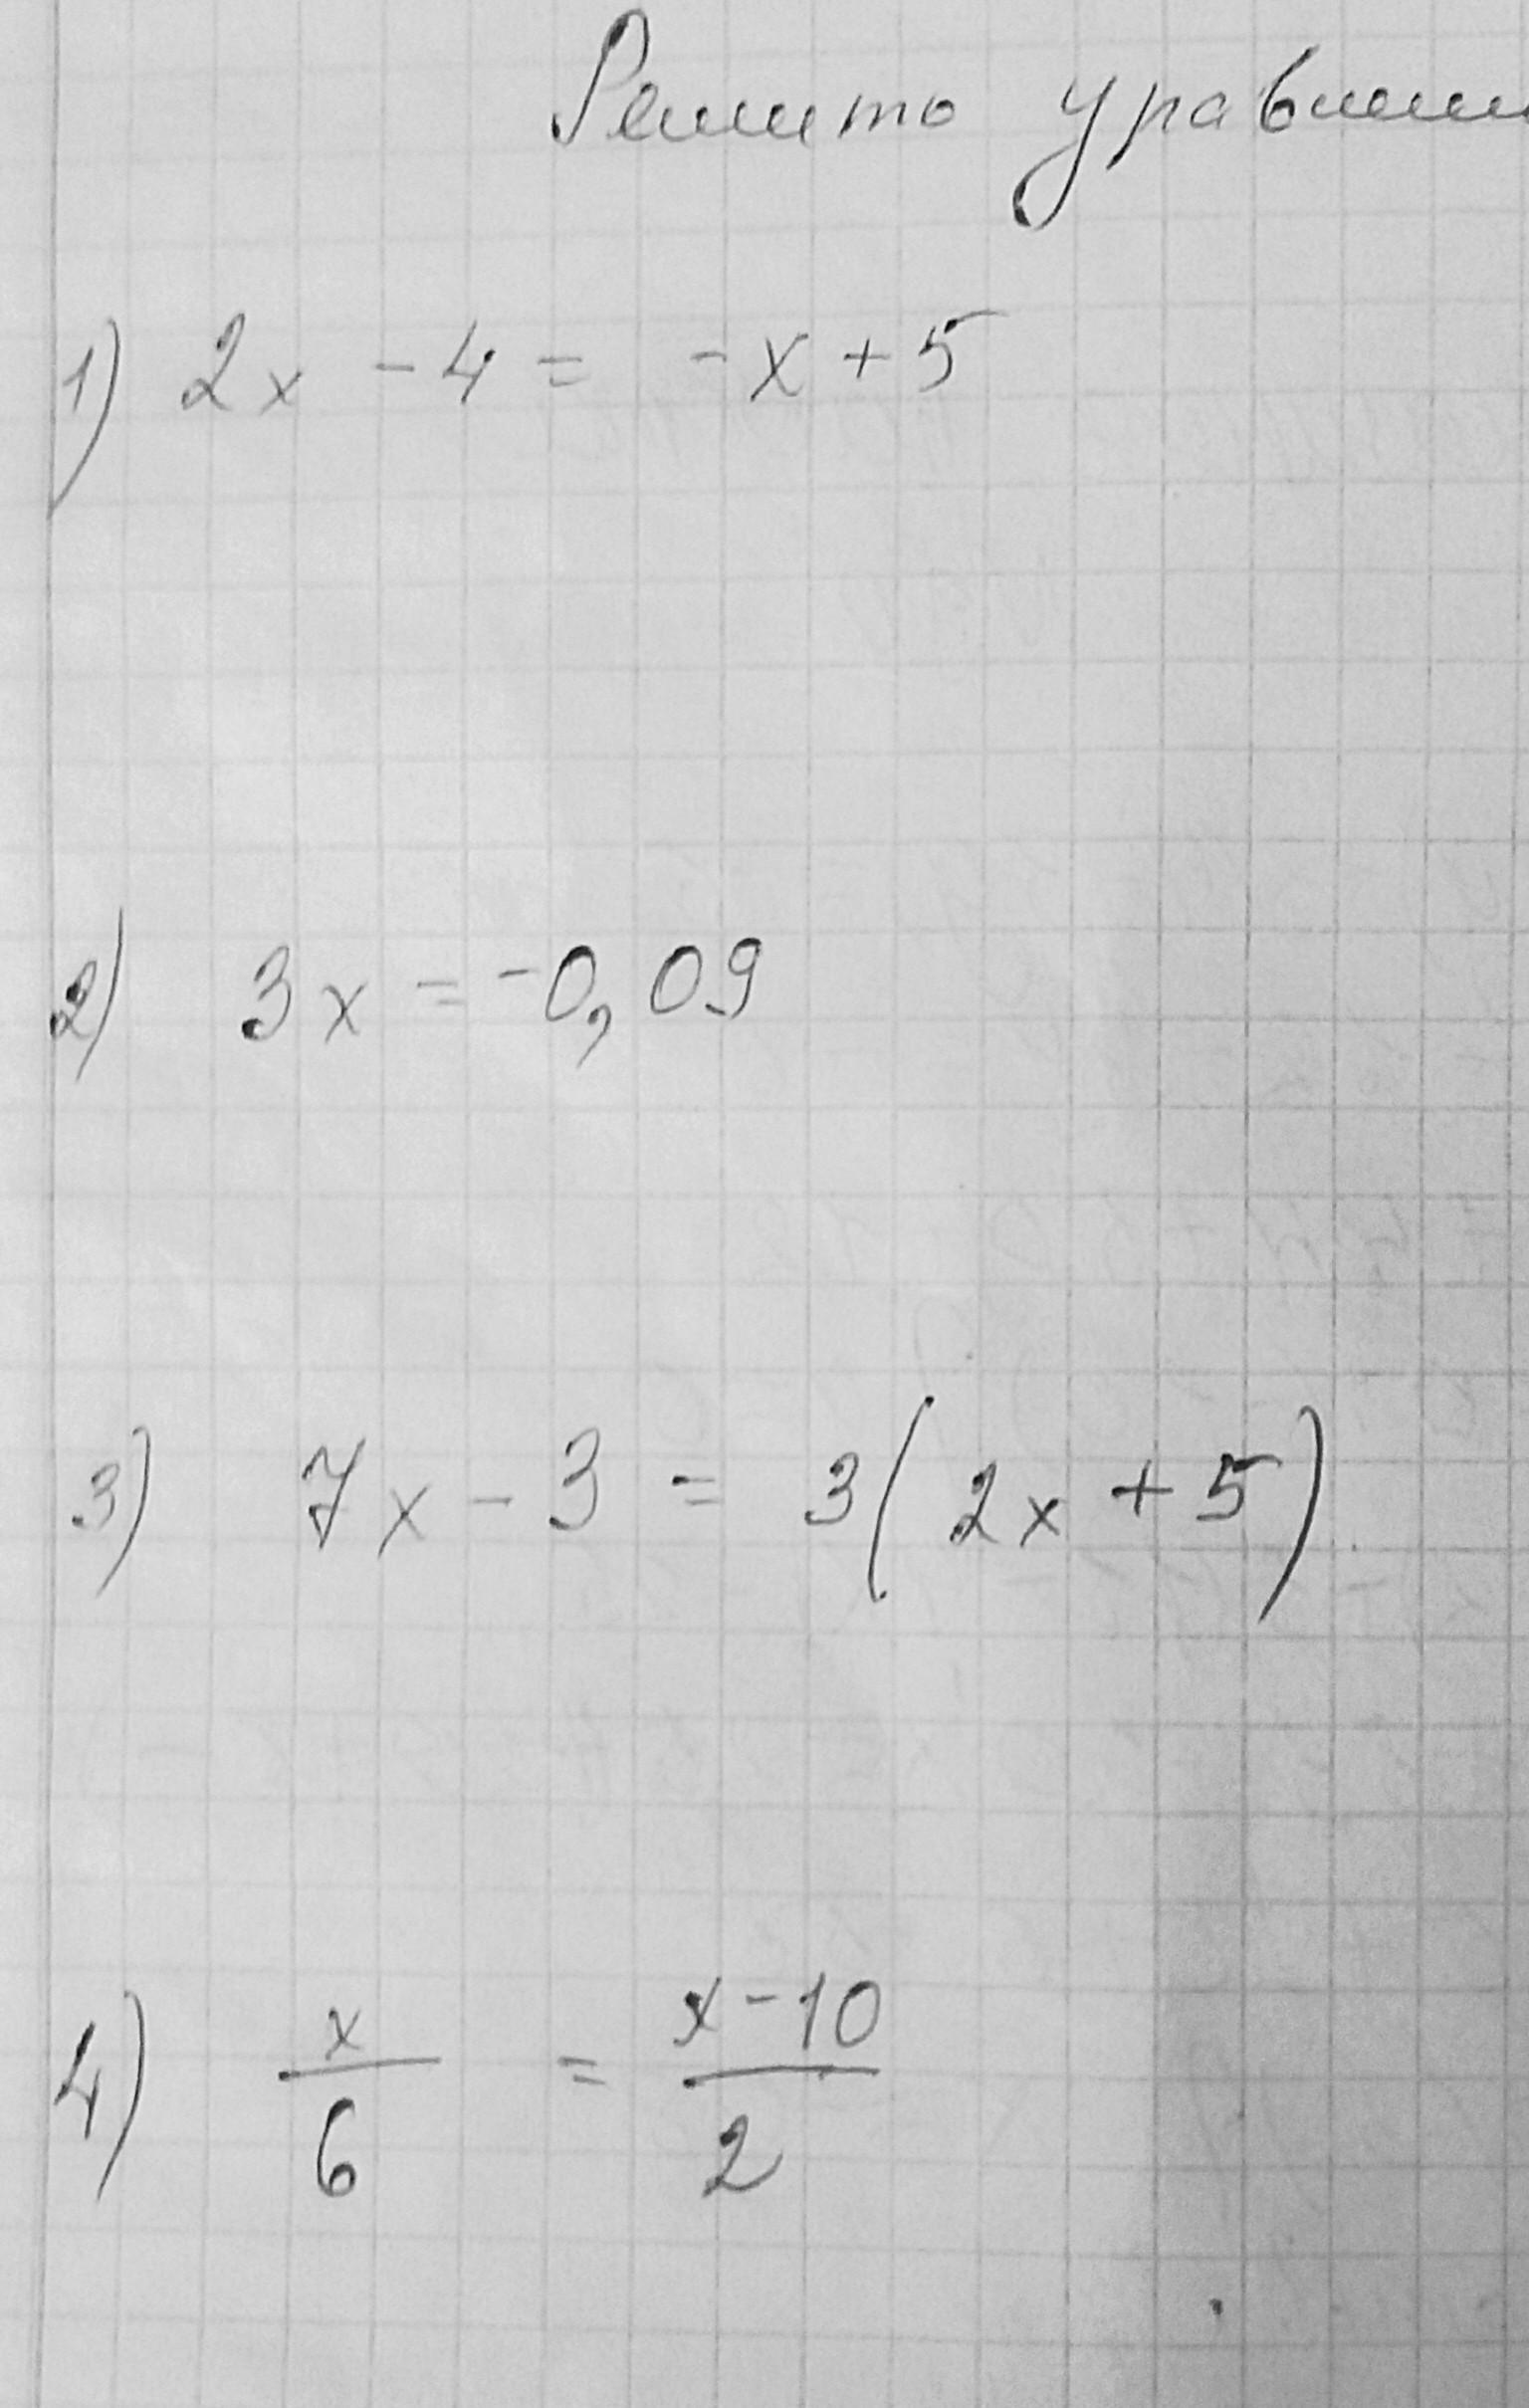 Решить уравнени
1) 2x - 4 = -x + 5
2) 3x = -0,09
3) 7x - 3 = 3(2x + 5)
4) x/6 = x-10/2